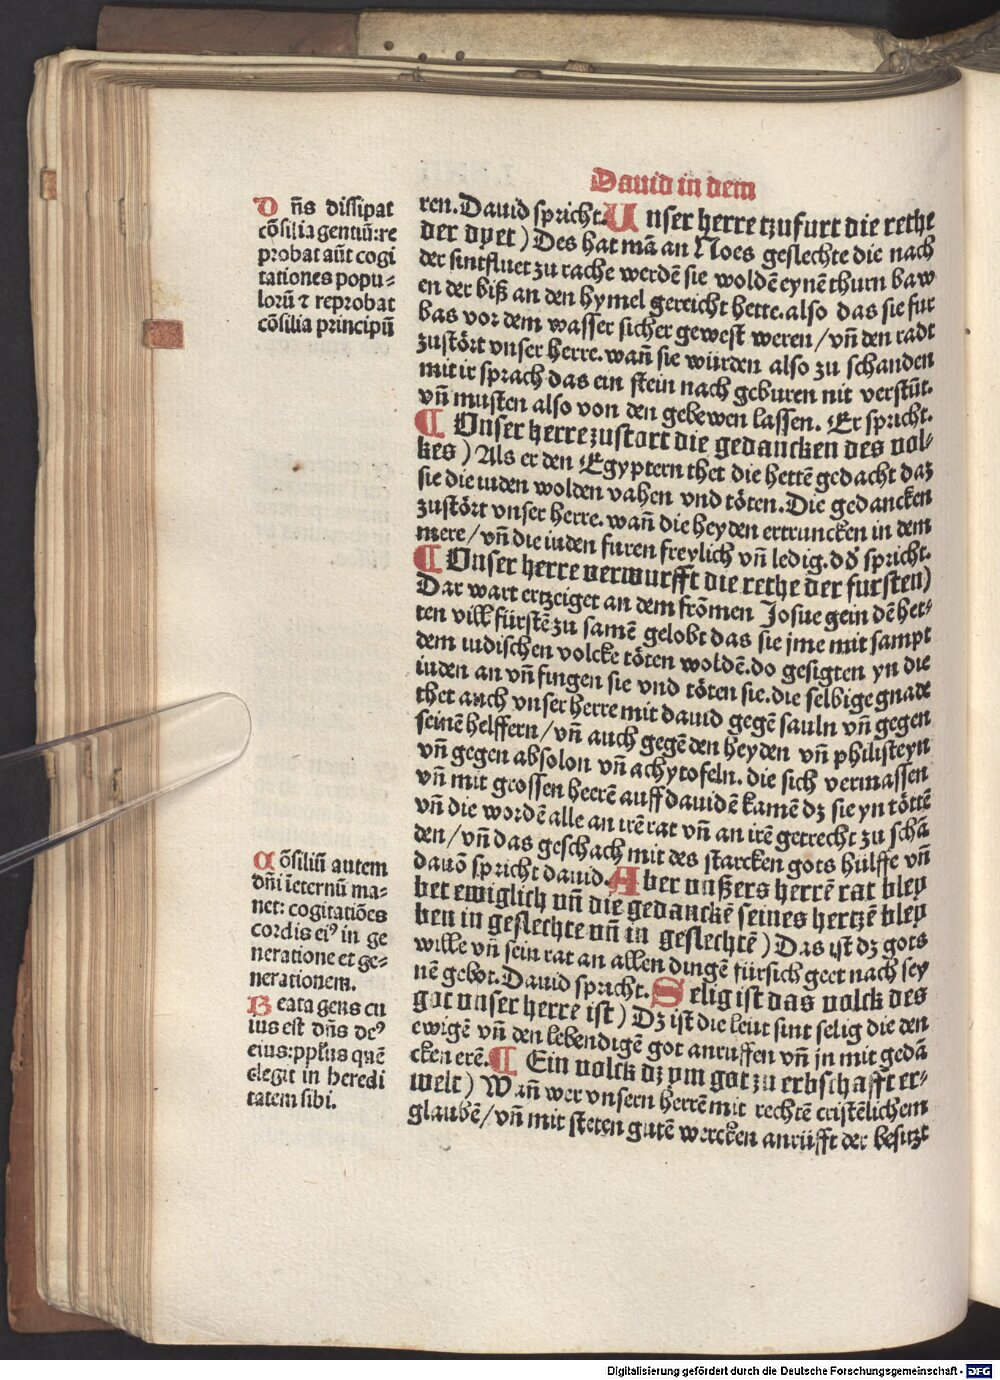 Dauid in dem
D ñs dissipat
cõsilia gentiũ: re
probat aũt cogi
tationes popu-
lorũ ⁊ reprobat
cõsilia principũ
ren. Dauid spricht. Unser herre tzufurt die rethe
der dyet) Des hat mã an Noes geslechte die nach
der sintfluet zu rache werdẽ sie woldẽ eynẽ thurn baw
en der biß an den hymel gereicht hette. also das sie fur
bas vor dem wasser sicher gewest weren / vñ den radt
zustört vnser herre. wañ sie würden also zu schanden
mit ir sprach das ein stein nach geburen nit verstũt.
vñ musten also von den gebewen lassen. Er spricht.
¶ Vnser herre zustort die gedancken des vol-
kes) Als er den Egyptern thet die hettẽ gedacht daz
sie die iuden wolden vahen vnd töten. Die gedancken
zustört vnser herre. wañ die heyden ertruncken in dem
mere / vñ die iuden furen freylich vñ ledig. dõ spricht.
¶ Vnser herre verwurfft die rethe der fursten)
Dar wart ertzeiget an dem frõmen Josue gein dẽ het-
ten vill fürstẽ zu samẽ gelobt das sie jme mit sampt
dem iudischen volcke töten woldẽ. do gesigten yn die
iuden an vñ fingen sie vnd töten sie. die selbige gnade
thet auch vnser herre mit dauid gegẽ sauln vñ gegen
seinẽ helffern / vñ auch gegẽ den heyden vñ philisteyn
vñ gegen absolon vñ achytofeln. die sich vermassen
vñ mit grossen heerẽ auff dauidẽ kamẽ dz sie yn töttẽ
vñ die wordẽ alle an irẽ rat vñ an irẽ getrecht zu schã
den / vñ das geschach mit des starcken gots hülffe vñ
dauõ spricht dauid. Aber vnßers herrẽ rat bley
bet ewiglich vñ die gedanckẽ seines hertzẽ bley
ben in geslechte vñ in geslechtẽ) Das ist dz gots
wille vñ sein rat an allen dingẽ fürsich geet nach sey
nẽ gebot. Dauid spricht. Selig ist das volck des
got vnser herre ist) Dz ist die leut sint selig die den
ewigẽ vñ den lebendigẽ got anruffen vñ jn mit gedã
cken erẽ. ¶ Ein volck dz ym got zu erbschafft er-
welt) Wañ wer vnsern herrẽ mit rechtẽ cristẽlichem
glaubẽ / vñ mit steten gutẽ wercken anrüfft der besitzt
C õsiliũ autem
dñi ĩeternũ ma-
net: cogitatiões
cordis ei⁹ in ge
neratione et ge-
nerationem.
B eata gens cu
ius est dñs de⁹
eius: ppłus quẽ
elegit in heredi
tatem sibi.
Digitalisierung gefördert durch die Deutsche Forschungsgemeinschaft - DFG